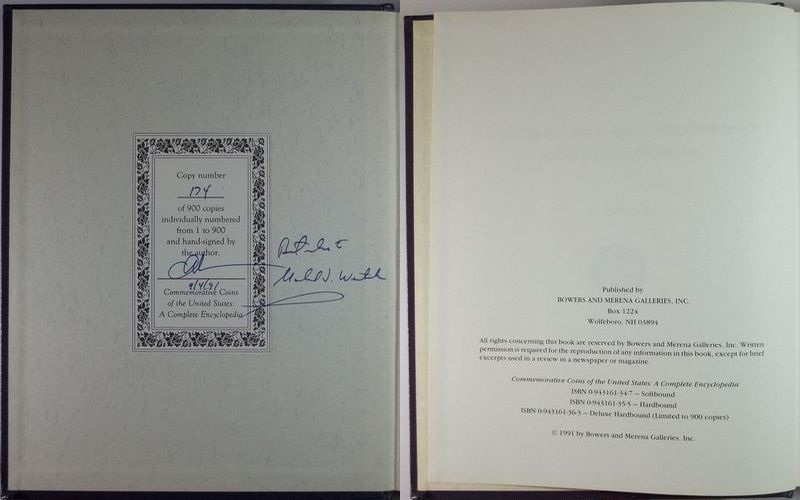 Copy number
174
of 900 copies
individually numbered
from 1 to 900
and hand-signed by
the author.
9/4/91
Commemorative Coins
of the United States:
A Complete Encyclopedia
Published by
BOWERS AND MERENA GALLERIES, INC.
Box 1224
Wolfeboro, NH 03894
All rights concerning this book are reserved by Bowers and Merena Galleries, Inc. Written
permission is required for the reproduction of any information in this book, except for brief
excerpts used in a review in a newspaper or magazine.
Commemorative Coins of the United States: A Complete Encyclopedia
ISBN 0-943161-34-7 — Softbound
ISBN 0-943161-35-5 — Hardbound
ISBN 0-943161-36-3 — Deluxe Hardbound (Limited to 900 copies)
© 1991 by Bowers and Merena Galleries, Inc.